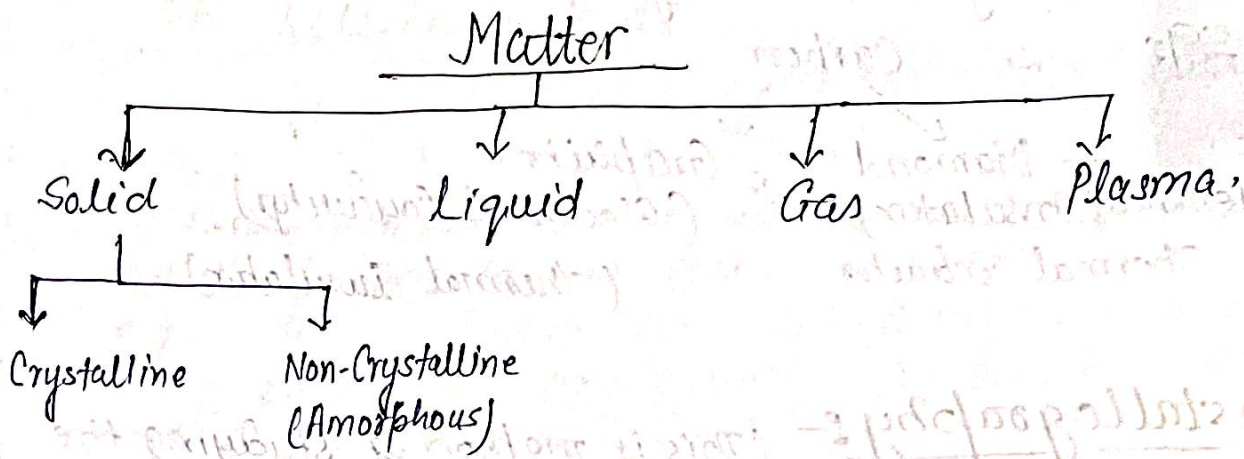 Matter
Solid Liquid Gas Plasma.
Crystalline Non-Crystalline
(Amorphous)